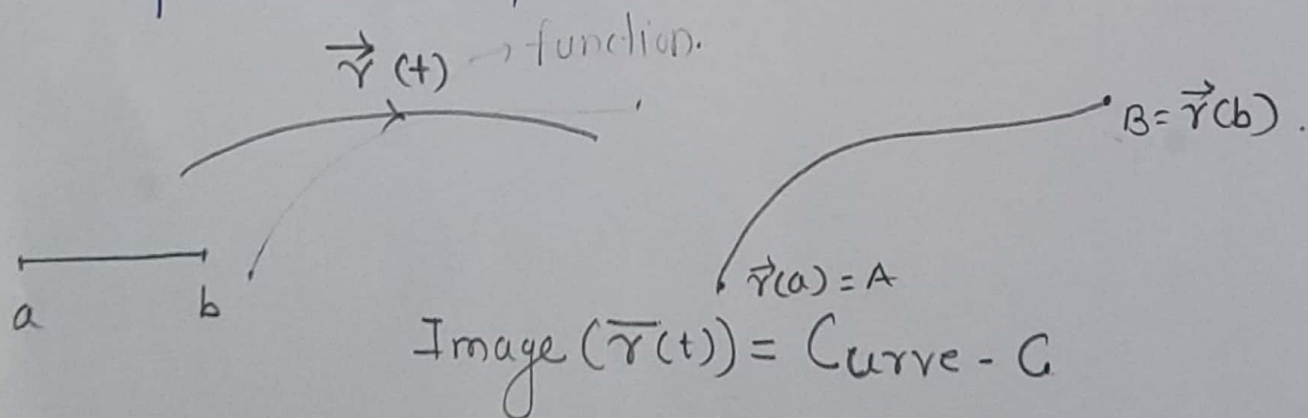 r⃗ (t) → function.
B = r⃗(b).
a b
r⃗(a) = A
Image (r̅(t)) = Curve - C